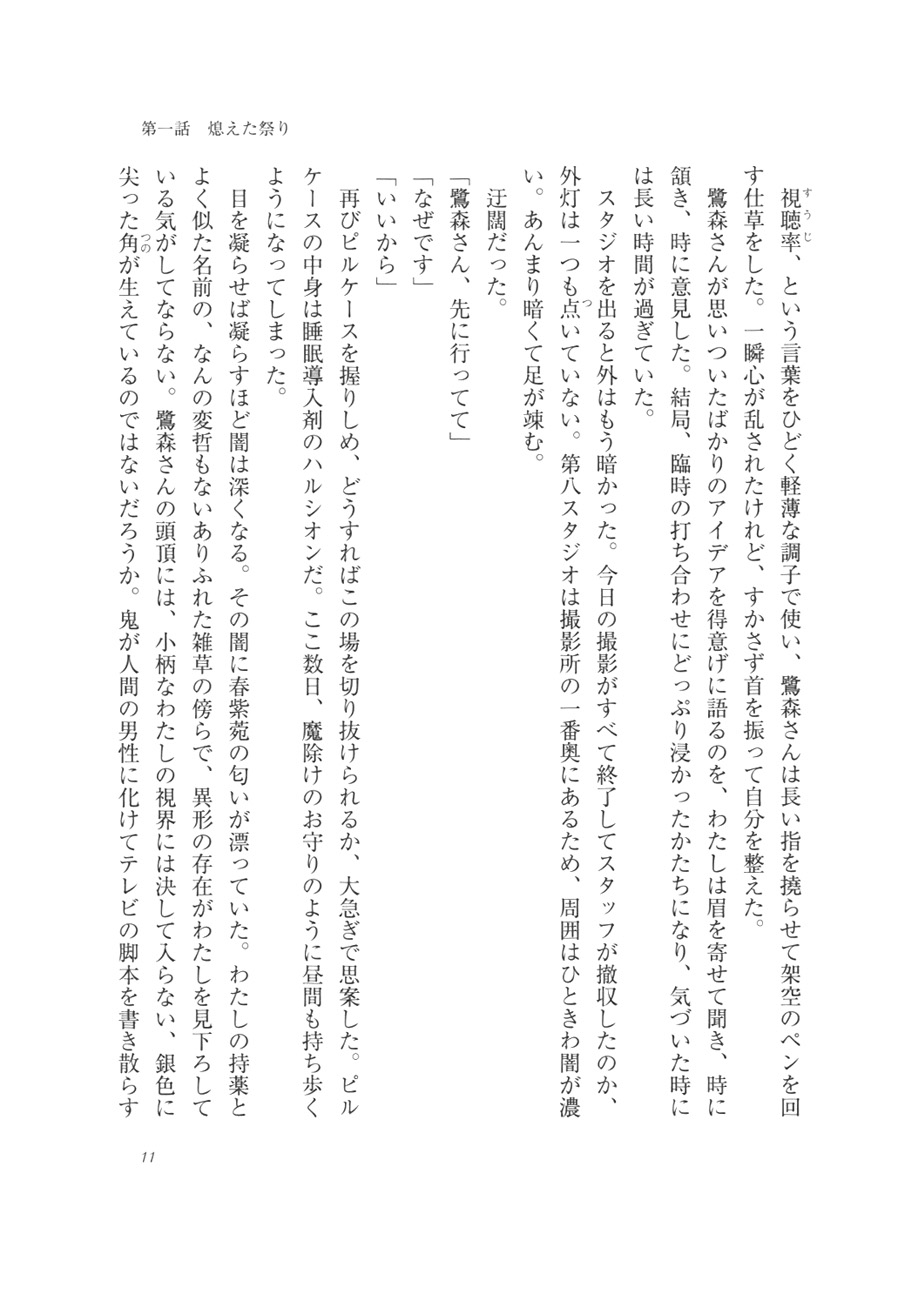 第一話　熄えた祭り
視聴率、という言葉をひどく軽薄な調子で使い、鷺森さんは長い指を撓らせて架空のペンを回
すうじ
す仕草をした。一瞬心が乱されたけれど、すかさず首を振って自分を整えた。
鷺森さんが思いついたばかりのアイデアを得意げに語るのを、わたしは眉を寄せて聞き、時に
頷き、時に意見した。結局、臨時の打ち合わせにどっぷり浸かったかたちになり、気づいた時に
は長い時間が過ぎていた。
スタジオを出ると外はもう暗かった。今日の撮影がすべて終了してスタッフが撤収したのか、
外灯は一つも点いていない。第八スタジオは撮影所の一番奥にあるため、周囲はひときわ闇が濃
つ
い。あんまり暗くて足が竦む。
迂闊だった。
「鷺森さん、先に行ってて」
「なぜです」
「いいから」
再びピルケースを握りしめ、どうすればこの場を切り抜けられるか、大急ぎで思案した。ピル
ケースの中身は睡眠導入剤のハルシオンだ。ここ数日、魔除けのお守りのように昼間も持ち歩く
ようになってしまった。
目を凝らせば凝らすほど闇は深くなる。その闇に春紫菀の匂いが漂っていた。わたしの持薬と
よく似た名前の、なんの変哲もないありふれた雑草の傍らで、異形の存在がわたしを見下ろして
いる気がしてならない。鷺森さんの頭頂には、小柄なわたしの視界には決して入らない、銀色に
尖った角が生えているのではないだろうか。鬼が人間の男性に化けてテレビの脚本を書き散らす
つの
11